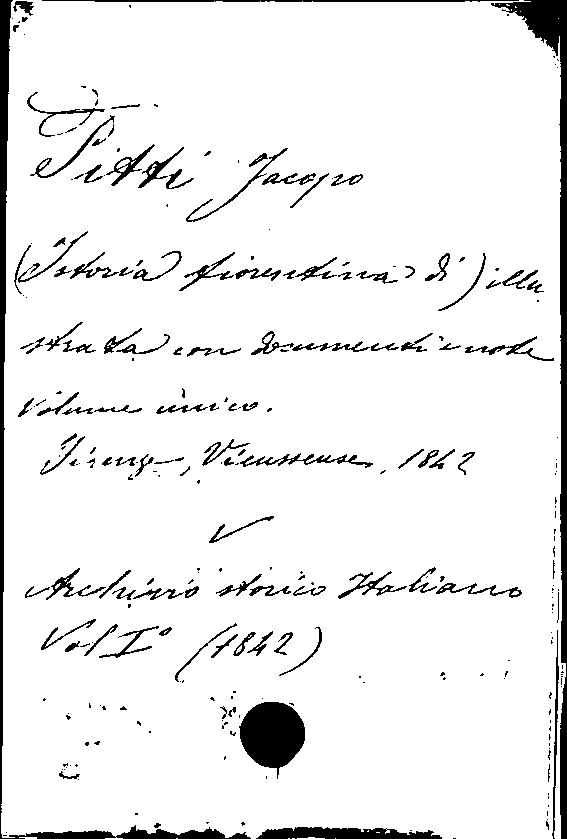 Pitti Jacopo
(Istoria fiorentina di) illu
strata con documenti e note
Volume unico.
Firenze, Vieusseux, 1842
V
Archivio storico Italiano
Vol I° (1842)